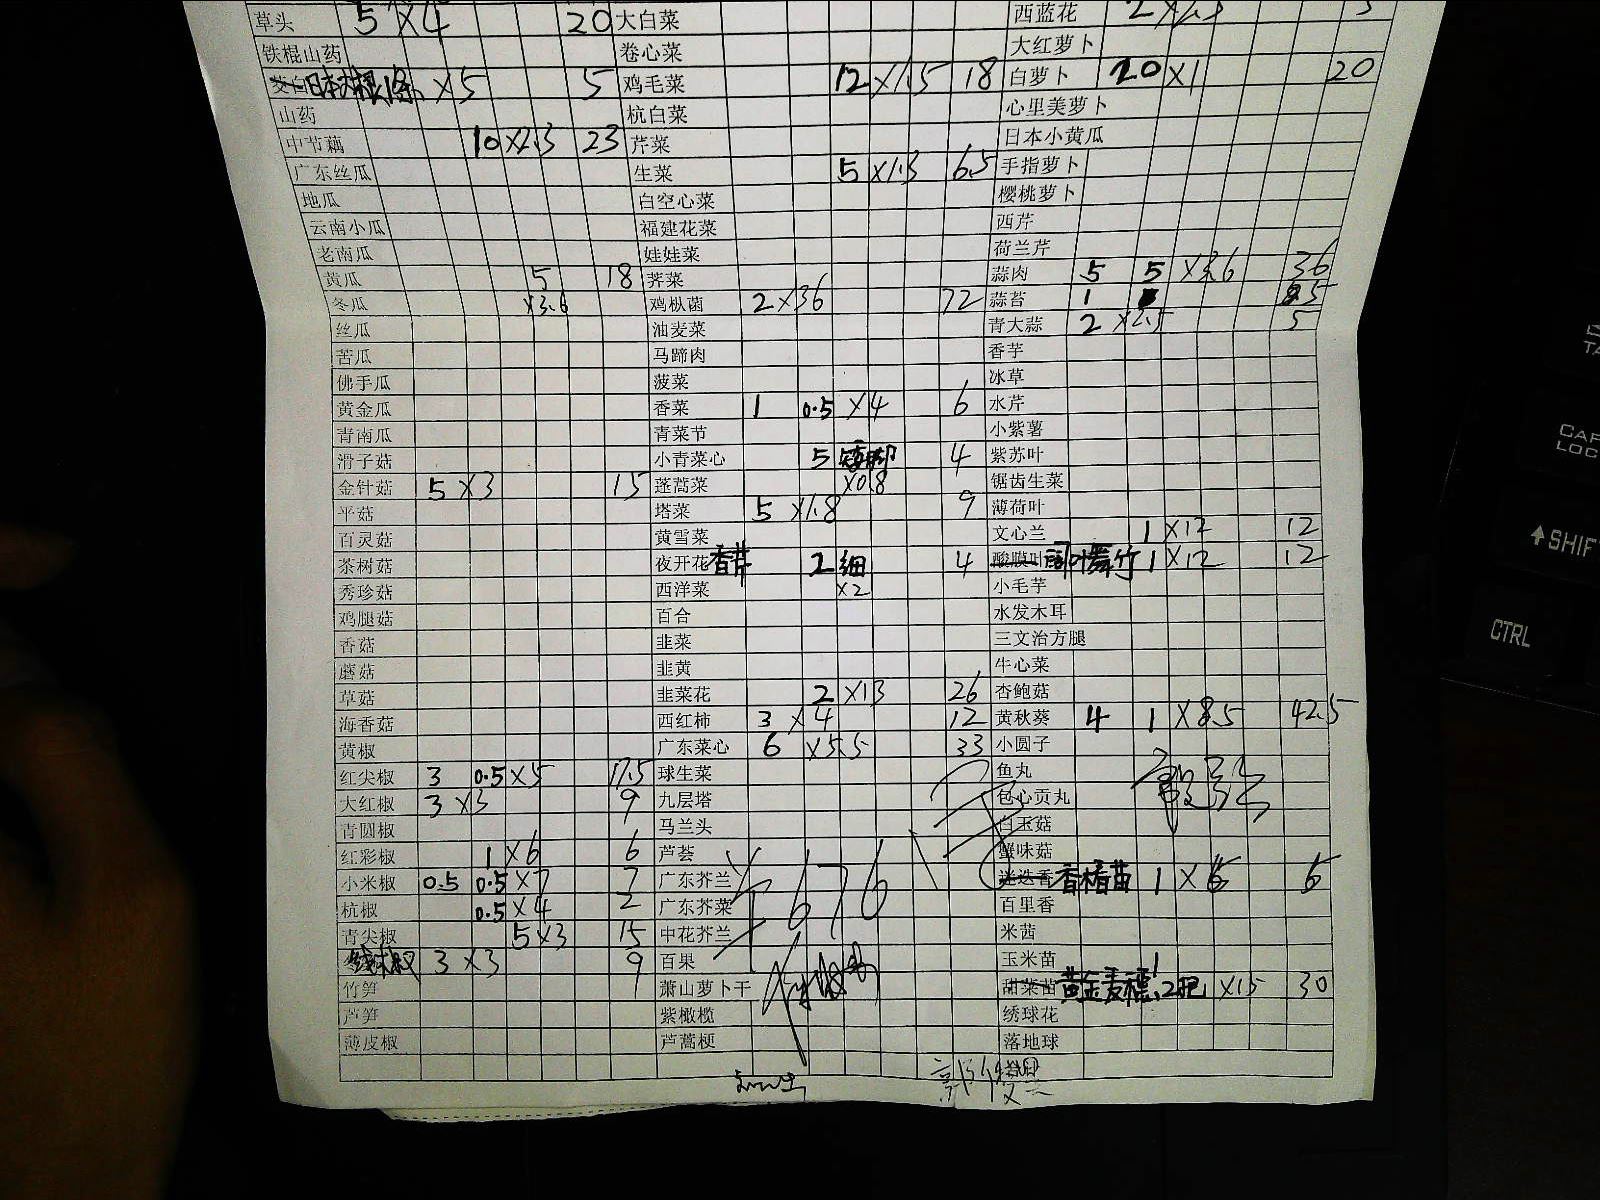 草头 5×4 20 大白菜 西蓝花
铁棍山药 卷心菜 大红萝卜
日本大根1条 ×5 5 鸡毛菜 12×1.5 18 白萝卜 20×1 20
山药 杭白菜 心里美萝卜
中节藕 10×2.3 23 芹菜 日本小黄瓜
广东丝瓜 生菜 5×1.3 6.5 手指萝卜
地瓜 白空心菜 樱桃萝卜
云南小瓜 福建花菜 西芹
老南瓜 娃娃菜 荷兰芹
黄瓜 5 18 荠菜 蒜肉 5 5 ×3.6 36
冬瓜 ×3.6 鸡枞菌 2×36 72 蒜苔 1
丝瓜 油麦菜 青大蒜 2×2.5 5
苦瓜 马蹄肉 香芋
佛手瓜 菠菜 冰草
黄金瓜 香菜 1 0.5×4 6 水芹
青南瓜 青菜节 小紫薯
滑子菇 小青菜心 5 矮脚 4 紫苏叶
金针菇 5×3 15 蓬蒿菜 ×0.8 锯齿生菜
平菇 塔菜 5×1.8 9 薄荷叶
百灵菇 黄雪菜 文心兰 1×12 12
茶树菇 夜开花 香芹 2 细 4 酸膜叶 1×12 12
秀珍菇 西洋菜 ×2 小毛芋
鸡腿菇 百合 水发木耳
香菇 韭菜 三文治方腿
蘑菇 韭黄 牛心菜
草菇 韭菜花 2×13 26 杏鲍菇
海香菇 西红柿 3×4 12 黄秋葵 4 1×8.5 42.5
黄椒 广东菜心 6×5.5 33 小圆子
红尖椒 3 0.5×5 17.5 球生菜 鱼丸
大红椒 3×3 9 九层塔 包心贡丸
青圆椒 马兰头 白玉菇
红彩椒 1×6 6 芦荟 蟹味菇
小米椒 0.5 0.5×7 7 广东芥兰 迷迭香 香椿苗 1×6 6
杭椒 0.5×4 2 广东芥菜 百里香
青尖椒 5×3 15 中花芥兰 米茜
线椒 3×3 9 百果 玉米苗
竹笋 萧山萝卜干 甜菜苗 黄金麦穗 2把×15 30
芦笋 紫橄榄 绣球花
薄皮椒 芦蒿梗 落地球
¥676
CTRL